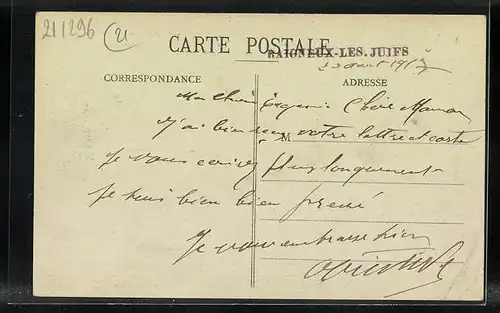 211296
21
CARTE POSTALE
BAIGNEUX-LES-JUIFS
23 août 1917
CORRESPONDANCE
ADRESSE
Ma Chère Eugénie Chère Maman
M
J'ai bien reçu votre lettre et carte
Je vous écrirez plus longuement
Je suis bien bien pressé
Je vous embrasse bien